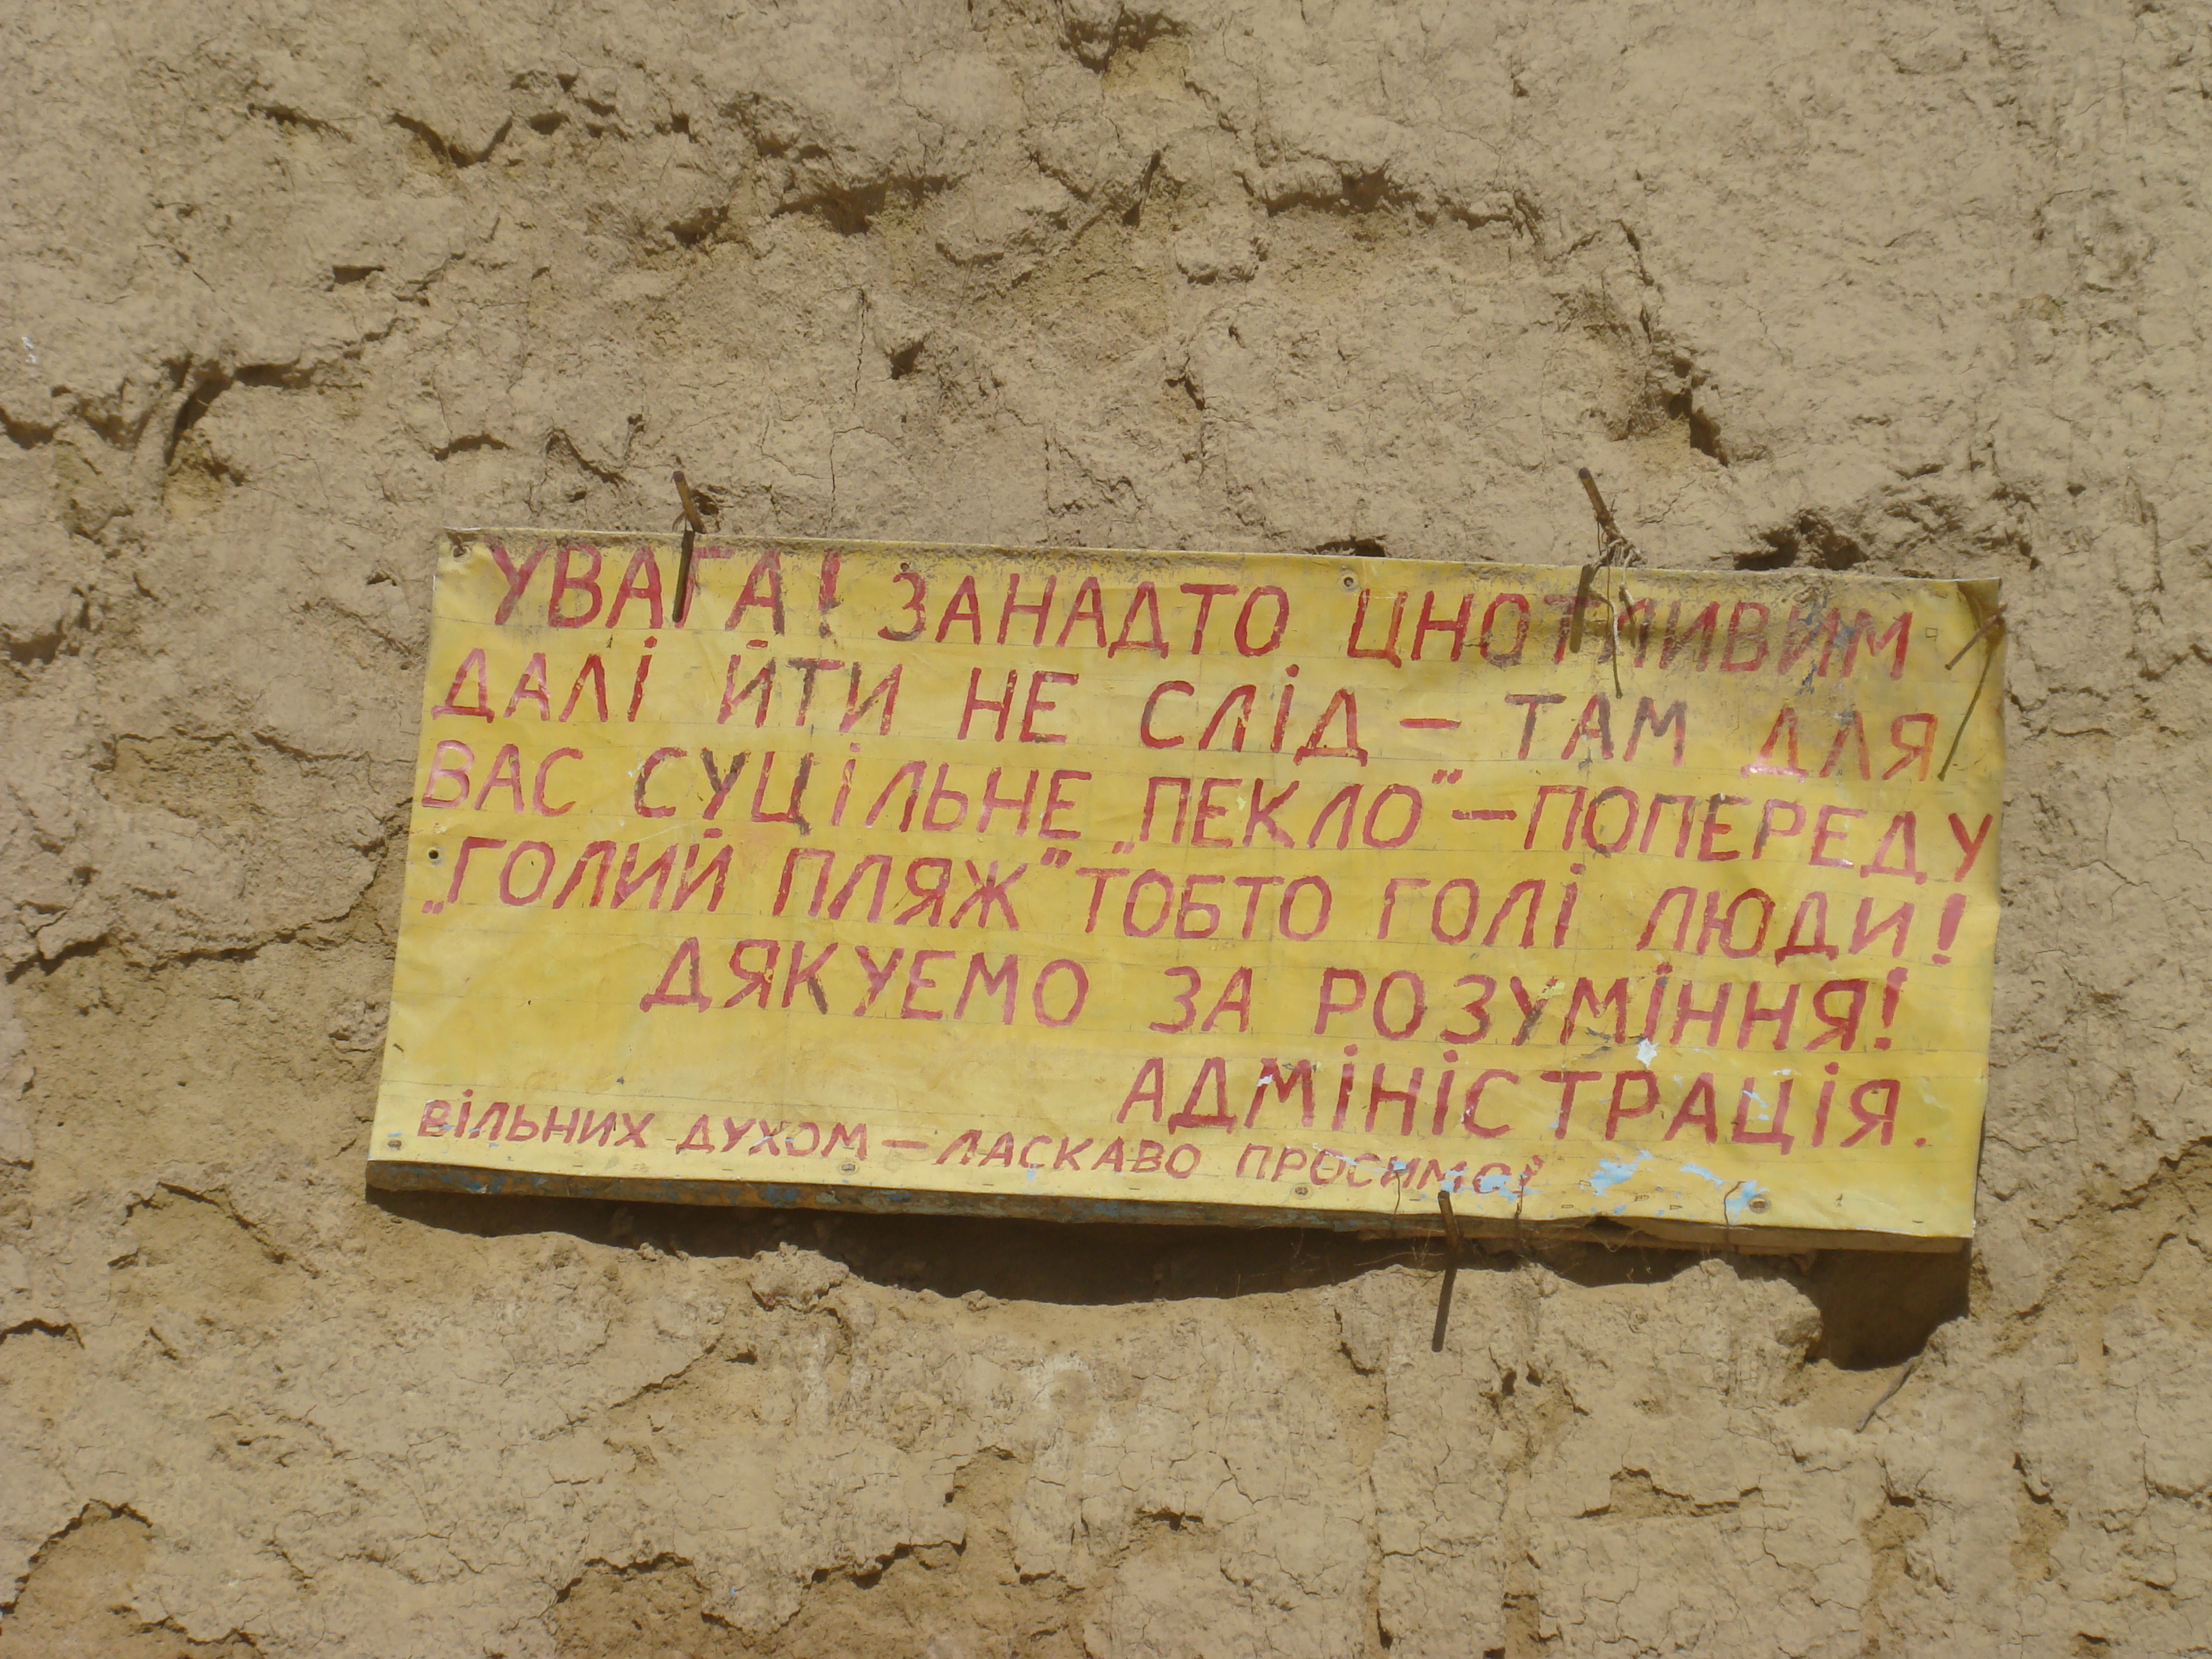 УВАГА! ЗАНАДТО ЦНОТЛИВИМ
ДАЛІ ЙТИ НЕ СЛІД – ТАМ ДЛЯ
ВАС СУЦІЛЬНЕ „ПЕКЛО" – ПОПЕРЕДУ
„ГОЛИЙ ПЛЯЖ" ТОБТО ГОЛІ ЛЮДИ!
ДЯКУЕМО ЗА РОЗУМІННЯ!
АДМІНІСТРАЦІЯ.
ВІЛЬНИХ ДУХОМ – ЛАСКАВО ПРОСИМО!